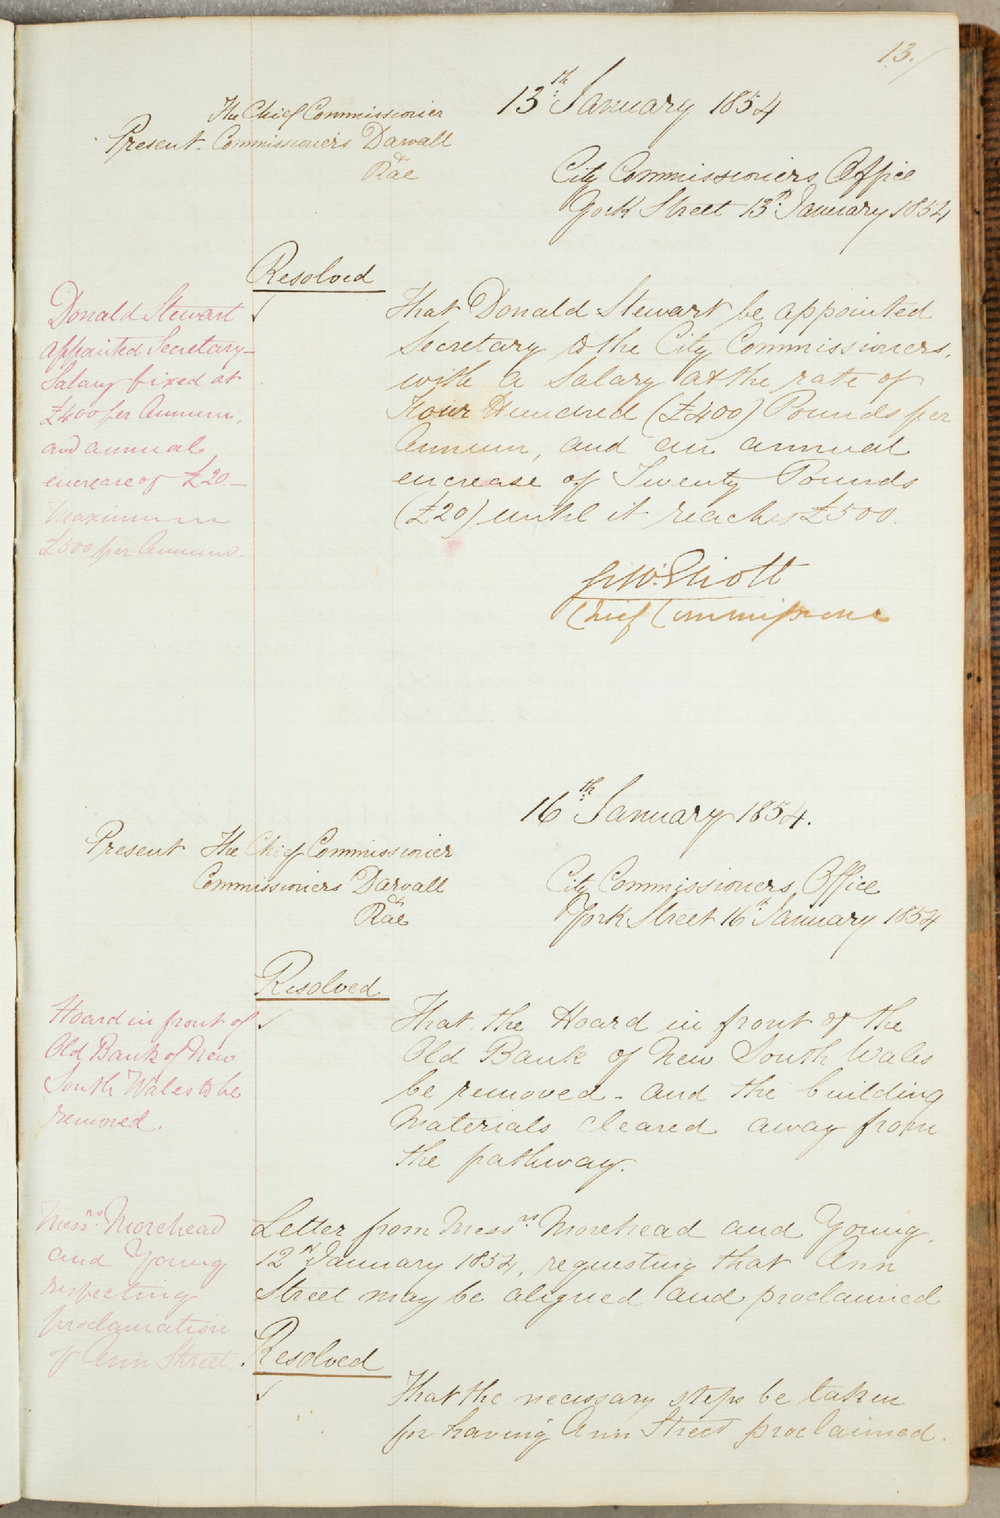 13./
13th January 1854
The Chief Commissioner
Present. Commissioners Darvall
&
Rae
City Commissioners Office
York Street 13th January 1854
Resolved
Donald Stewart
appointed Secretary
Salary fixed at
£400 per Annum,
and annual
encrease of £20.—
Maximum
£500 per Annum.
✓ That Donald Stewart be appointed
Secretary to the City Commissioners,
with a Salary at the rate of
Four Hundred (£400) Pounds per
Annum, and an annual
encrease of Twenty Pounds
(£20) until it reaches £500.
G W Eliott
Chief Commissioner
16th January 1854.
Present The Chief Commissioner
Commissioners Darvall
&
Rae
City Commissioners Office
York Street 16th January 1854
Resolved
Hoard in front of
Old Bank of New
South Wales to be
removed.
✓ That the Hoard in front of the
Old Bank of New South Wales
be removed - and the building
Materials cleared away from
the pathway.
Messrs. Morehead
and Young
respecting
proclamation
of Ann Street.
Letter from Messrs. Morehead and Young,
12th January 1854, requesting that Ann
Street may be aligned and proclaimed
Resolved
✓ That the necessary steps be taken
for having Ann Street proclaimed.